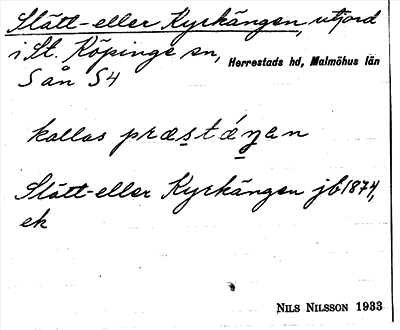 Slätt- eller Kyrkängen, utjord
i St. Köpinge sn, Herrestads hd, Malmöhus län
S ån S4
kallas præstáŋan
Slätt-eller Kyrkängen jb 1874,
ek
NILS NILSSON 1933